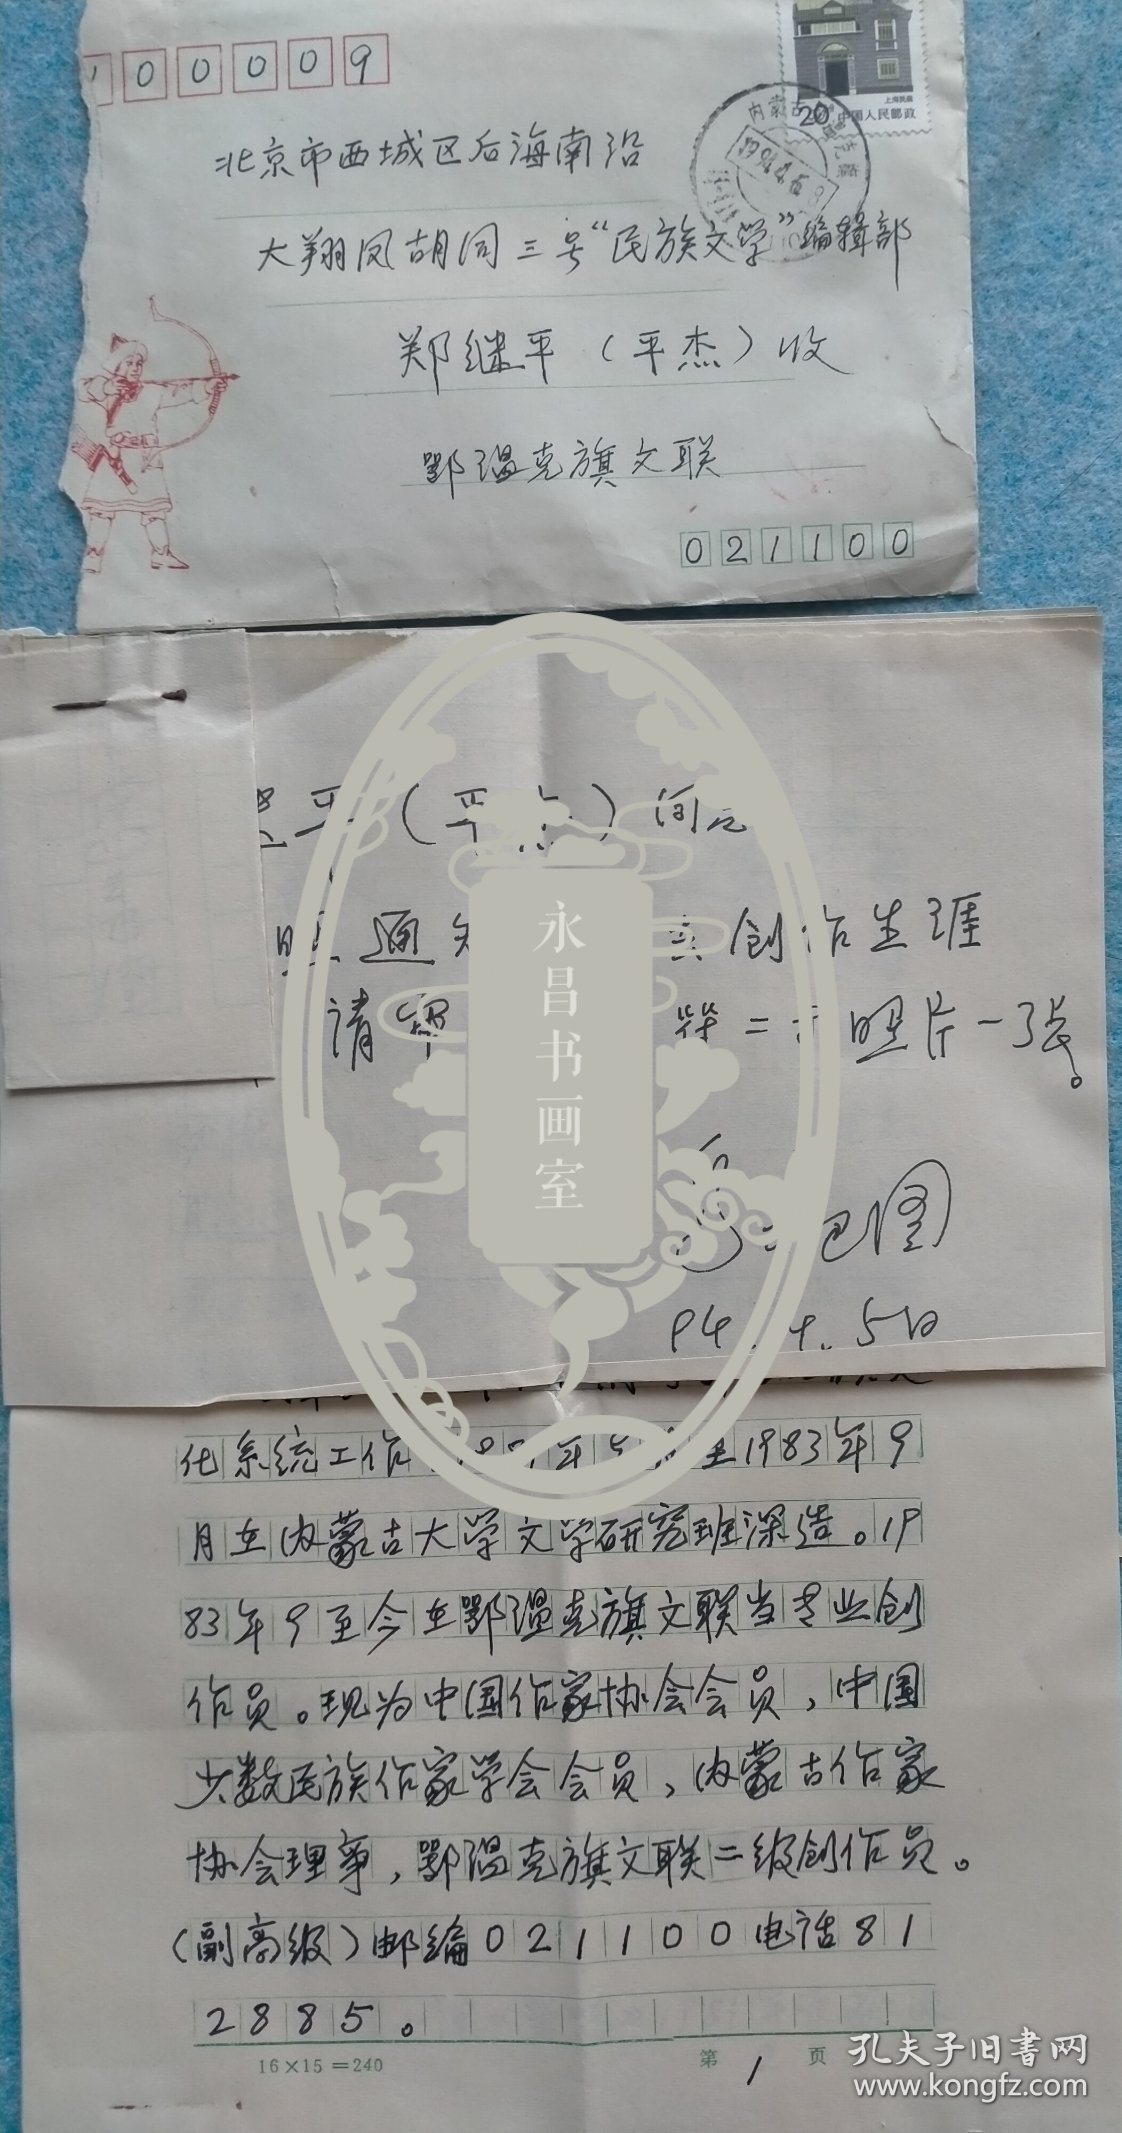 100009
上海民居
20 中国人民邮政
内蒙古
北京市西城区后海南沿
大翔凤胡同三号“民族文学”编辑部
郑继平（平杰）收
鄂温克旗文联
021100
平（平杰）同志
照通知 创作生涯
请 照片一张。
图
94.4.5日
永昌书画室
化系统工作 年 至1983年9
月在内蒙古大学文学研究班深造。19
83年9至今在鄂温克旗文联当专业创
作员。现为中国作家协会会员，中国
少数民族作家学会会员，内蒙古作家
协会理事，鄂温克旗文联二级创作员。
（副高级）邮编021100电话81
2885。
16×15＝240
第1页
孔夫子旧书网
www.kongfz.com